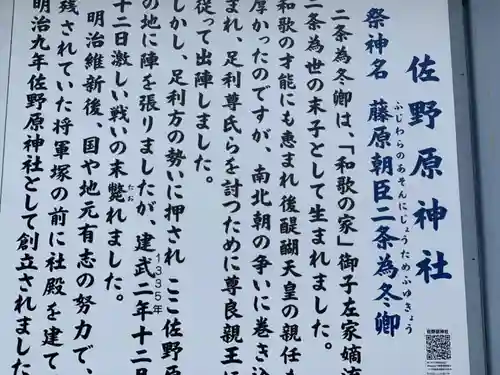 佐野原神社
祭神名 藤原朝臣二条為冬卿
ふじわらのあそんにじょうためふゆきょう
二条為冬卿は、「和歌の家」御子左家嫡流
二条為世の末子として生まれました。
和歌の才能にも恵まれ後醍醐天皇の親任も
厚かったのですが、南北朝の争いに巻き込
まれ、足利尊氏らを討つために尊良親王に
従って出陣しました。
しかし、足利方の勢いに押され ここ佐野原
の地に陣を張りましたが、建武二年十二月
1335年
十二日激しい戦いの末斃れました。
たお
明治維新後、国や地元有志の努力で、
残されていた将軍塚の前に社殿を建て
明治九年佐野原神社として創立されました
佐野原神社